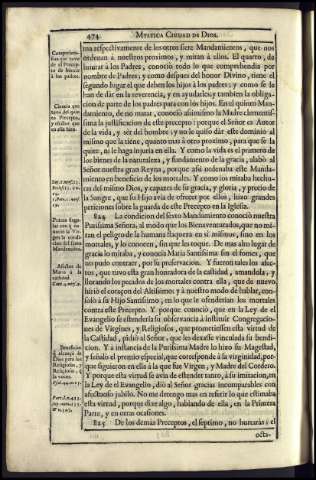 474 MYSTICA CIUDAD DE DIOS.
ma respectivamente de los otros siete Mandamientos, que nos
ordenan à nuestros proximos, y miran à ellos. El quarto, de
honrar à los Padres, conociò todo lo que comprehendia por
nombre de Padres; y como despues del honor Divino, tiene el
segundo lugar el que deben los hijos à los padres; y como se le
han de dar en la reverencia, y en ayudarles; y tambien la obliga-
cion de parte de los padres para con los hijos. En el quinto Man-
damiento, de no matar, conociò assimismo la Madre clementis-
sima la justificacion de este precepto: porque el Señor es Autor
de la vida, y sèr del hombre; y no le quiso dàr este dominio al
mismo que la tiene, quanto mas à otro proximo, para que se la
quite, ni le haga injuria en ella. Y como la vida es el primero de
los bienes de la naturaleza, y fundamento de la gracia, alabò al
Señor nuestra gran Reyna, porque assi ordenaba este Manda-
miento en beneficio de los mortales. Y como los miraba hechu-
ras del mismo Dios, y capaces de su gracia, y gloria, y precio de
la Sangre, que su Hijo avia de ofrecer por ellos, hizo grandes
peticiones sobre la guarda de este Precepto en la Iglesia.
824 La condicion del sexto Mandamiento conociò nuestra
Purissima Señora, al modo que los Bienaventurados, que no mi-
ran el peligro de la humana flaqueza en sì mismos, sino en los
mortales, y lo conocen, sin que les toque. De mas alto lugar de
gracia lo miraba, y conocia Maria Santissima sin el fomes, que
no pudo contraer, por su preservacion. Y fueron tales los afec-
tos, que tuvo esta gran honradora de la castidad, amandola, y
llorando los pecados de los mortales contra ella, que de nuevo
hiriò el corazon del Altissimo; y à nuestro modo de hablar, con-
solò à su Hijo Santissimo, en lo que le ofenderian los mortales
contra este Precepto. Y porque conociò, que en la Ley de el
Evangelio se estenderia su observancia à instituir Congregacio-
nes de Virgines, y Religiosos, que prometiessen esta virtud de la
Castidad, pidiò al Señor, que les dexasse vinculada su bendi-
cion. Y à instancia de la Purissima Madre lo hizo su Magestad,
y señalò el premio especial, que corresponde à la virginidad, por-
que siguieron en ella à la que fue Virgen, y Madre del Cordero.
Y porque esta virtud se avia de estender tanto, à su imitacion, en
la Ley de el Evangelio, diò al Señor gracias incomparables con
afectuoso jubilo. No me detengo mas en referir lo que estimaba
esta virtud, porque dixe algo, hablando de ella, en la Primera
Parte, y en otras ocasiones.
825 De los demàs Preceptos, el septimo, no hurtaràs; el
octa-